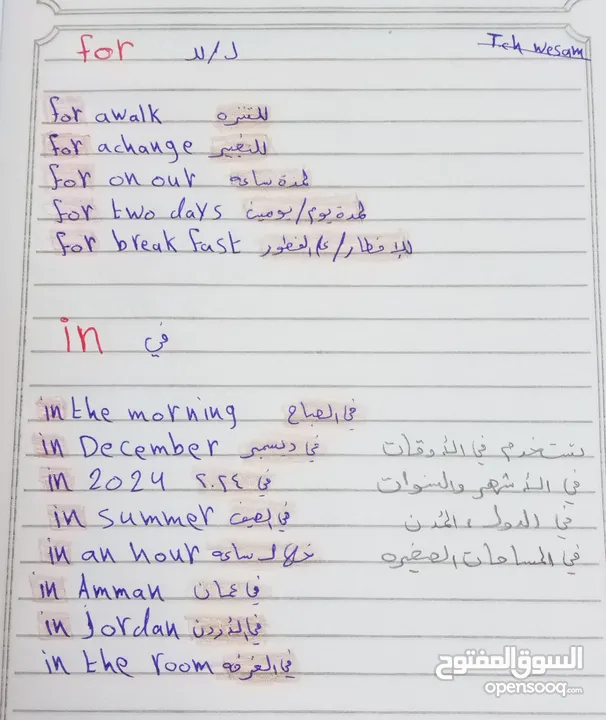 for لـ/لل Teh wesam
for awalk للتنزه
for achange للتغيير
for on our لمدة ساعة
for two days لمدة يوم/يومين
for break fast للإفطار/على الفطور
in في
in the morning في الصباح
in December في ديسمبر تستخدم في الأوقات
in 2024 في ٢٠٢٤ في الأشهر والسنوات
in summer في الصيف في الدول، المدن
in an hour خلال ساعة في المساحات الصغيره
in Amman في عمان
in Jordan في الأردن
in the room في الغرفه
السوق المفتوح
opensooq.com